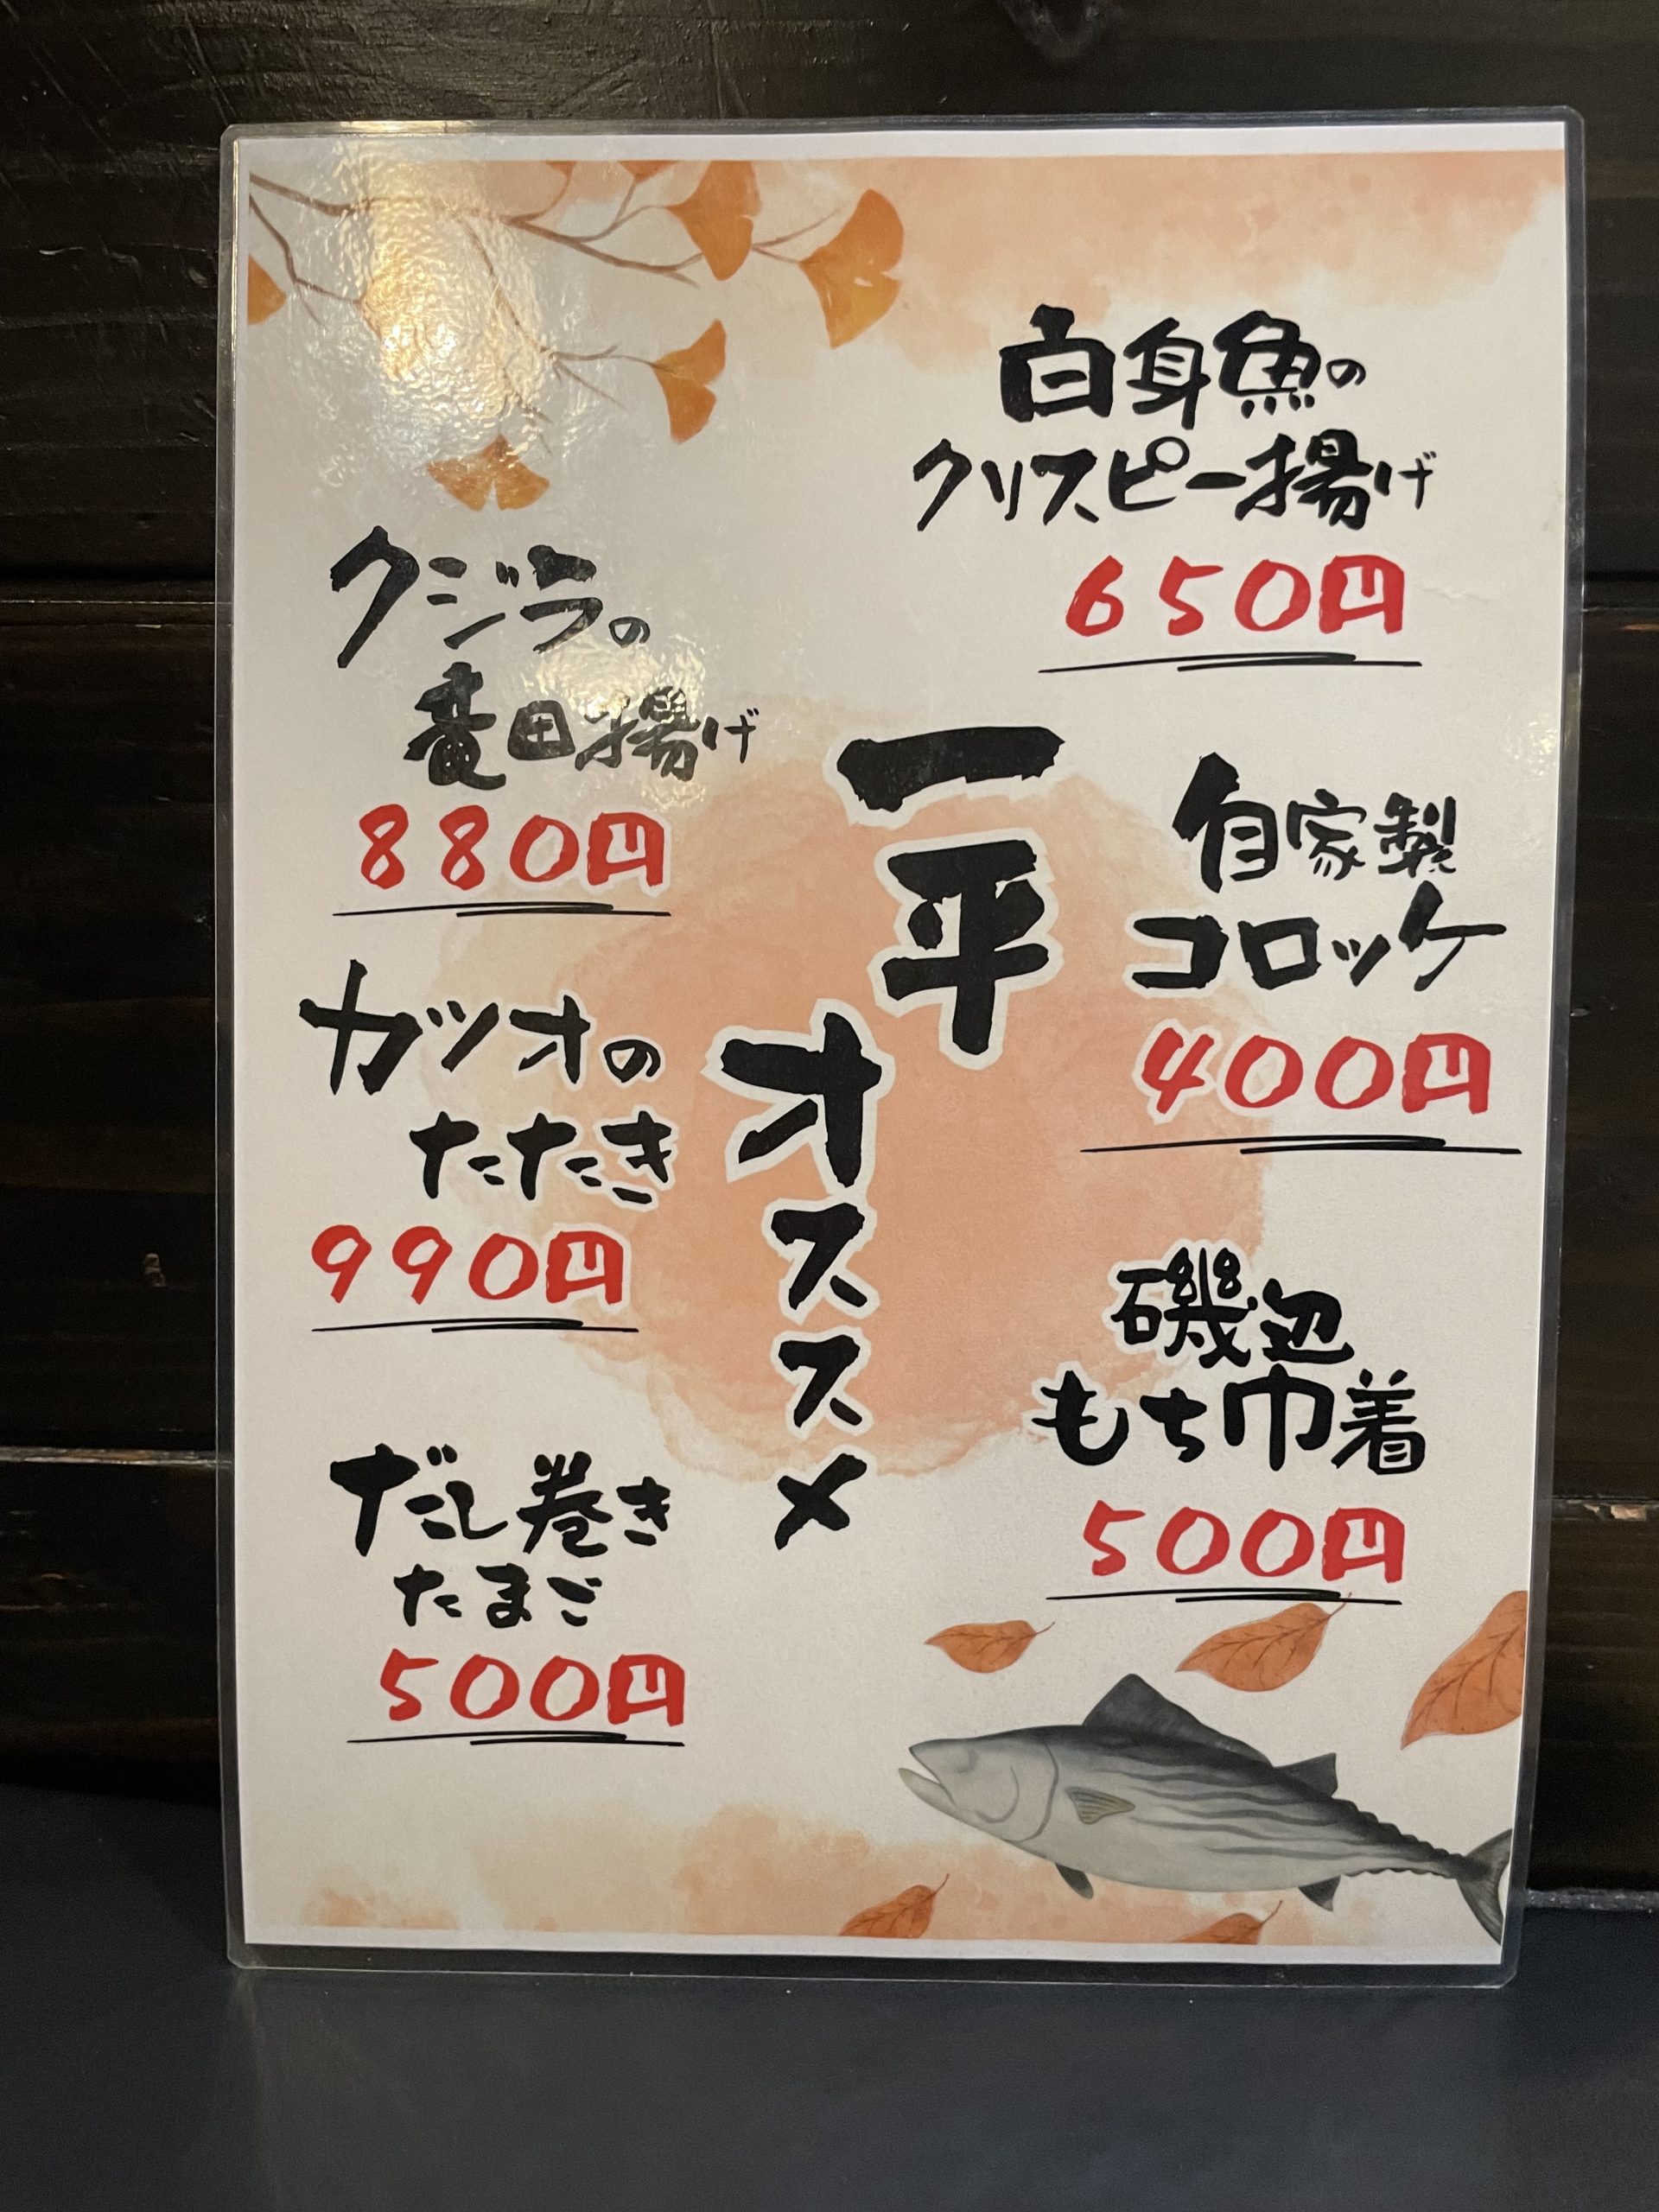 白身魚の
クリスピー揚げ
650円
自家製
コロッケ
400円
磯辺
もち巾着
500円
一平
オススメ
クジラの
竜田揚げ
880円
カツオの
たたき
990円
だし巻き
たまご
500円